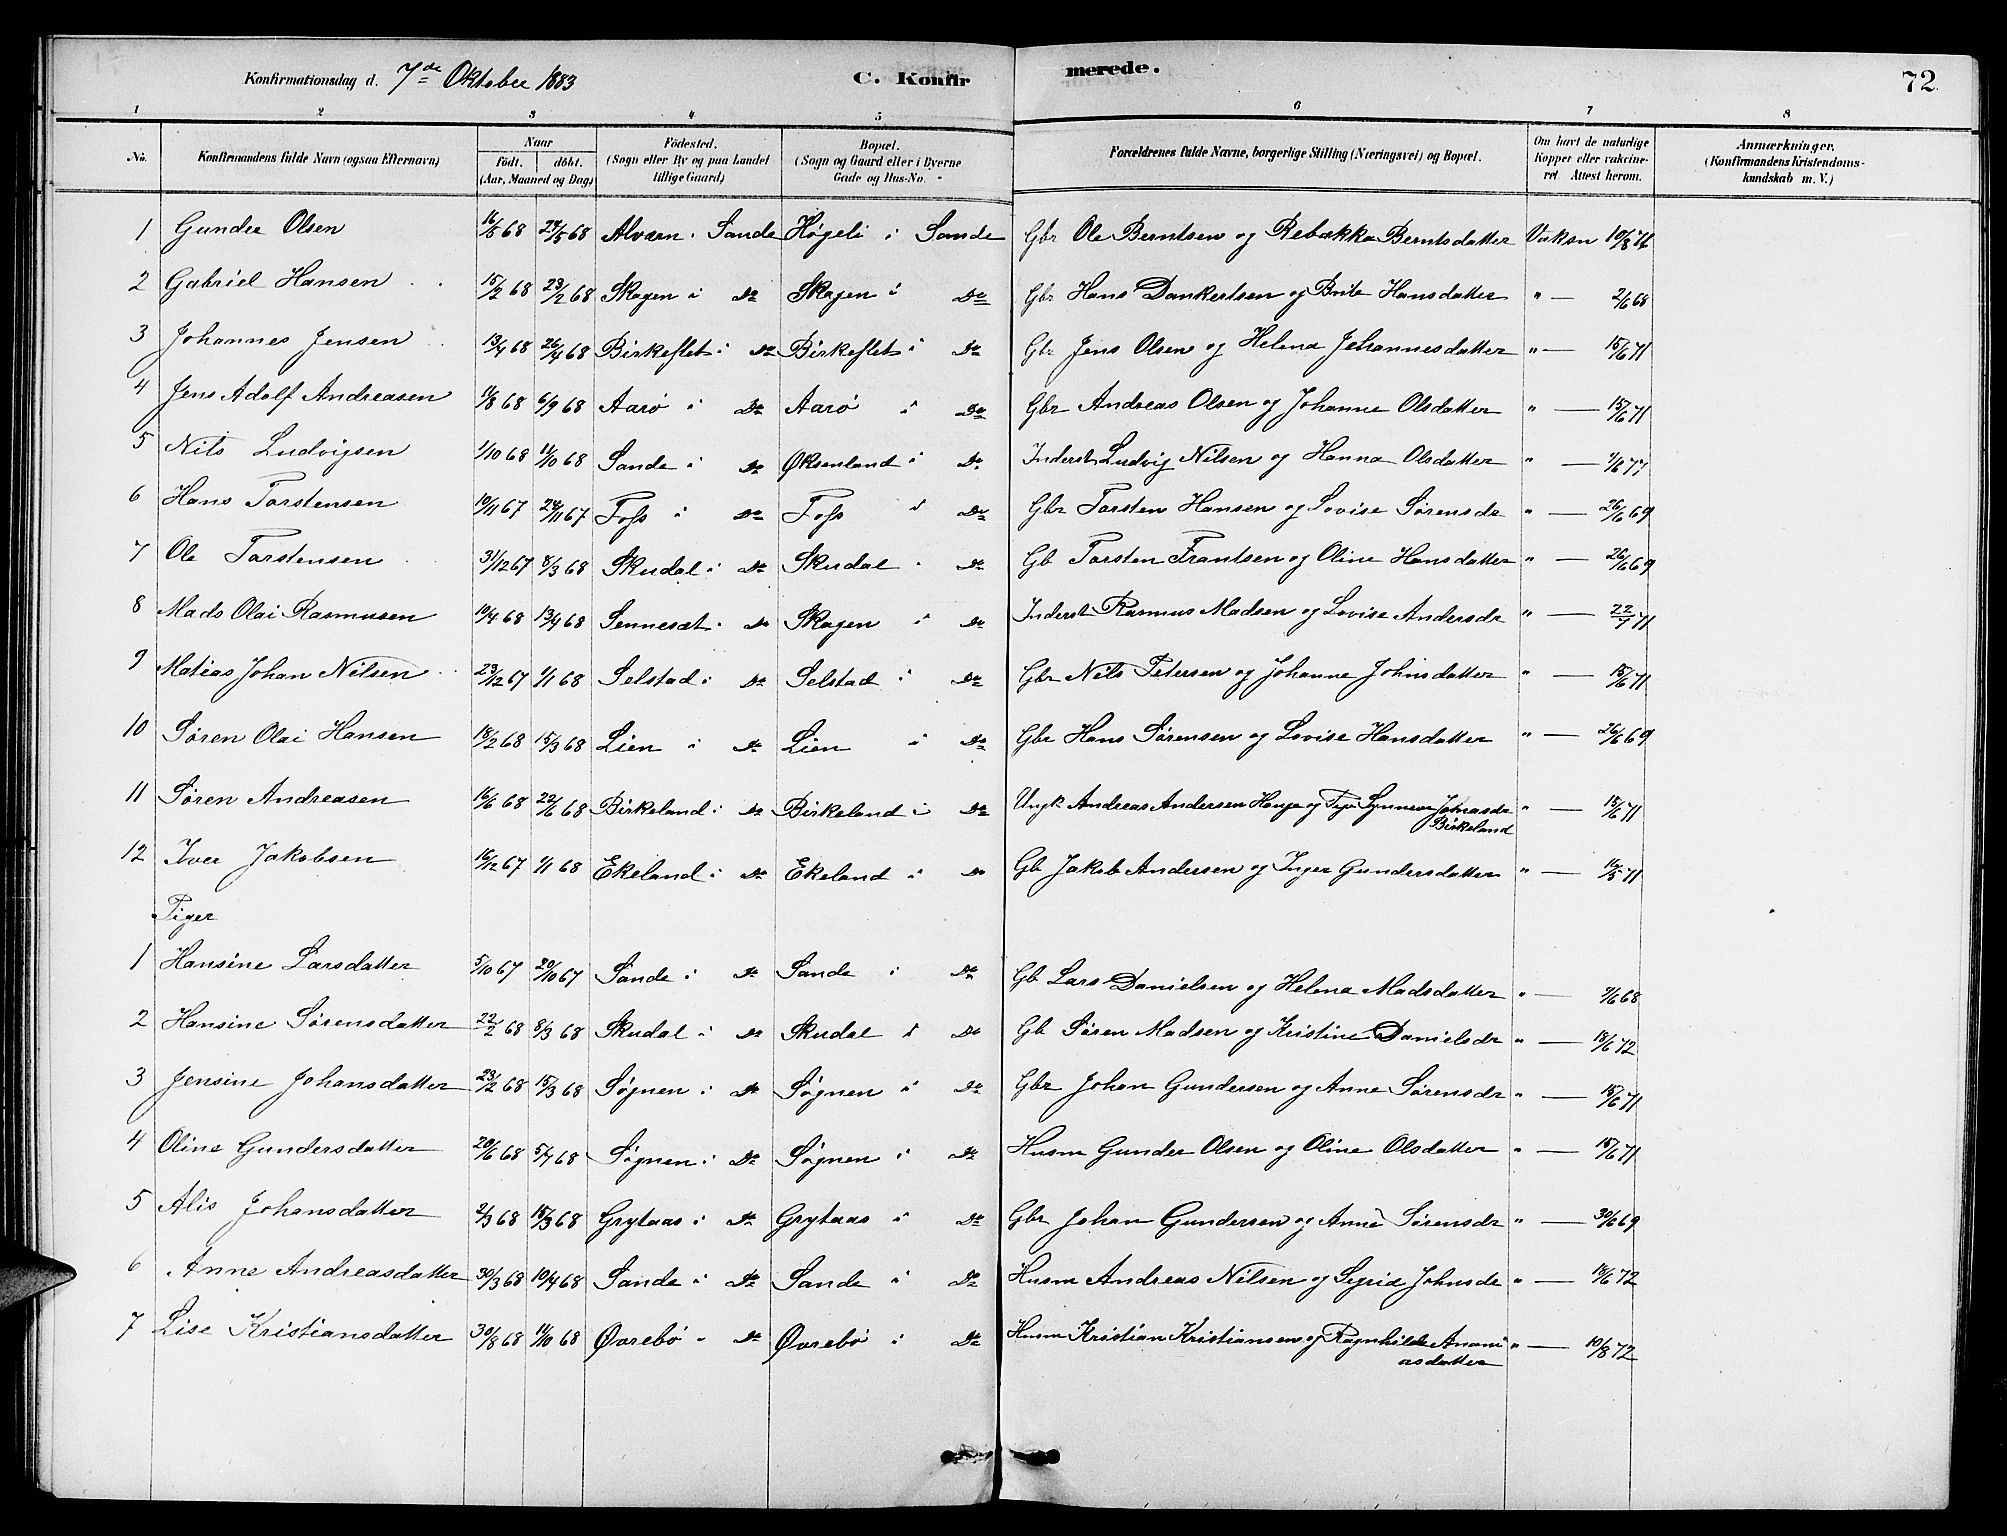 Konfirmationsdag d. 7de Oktober 1883 C. Konfirmerede. 72
1 2 3 4 5 6 7 8
No. Konfirmandens fulde Navn (ogsaa Efternavn) Naar født. døbt. (Aar, Maaned og Dag) Fødested. (Sogn eller By og paa Landet tillige Gaard) Bopæl. (Sogn og Gaard eller i Byerne Gade og Hus-No. Forældrenes fulde Navne, borgerlige Stilling (Næringsvei) og Bopæl. Om havt de naturlige Kopper eller vakcineret Attest herom. Anmærkninger. (Konfirmandens Kristendomskundskab m. V.)
1 Gunder Olsen 16/5 68 24/5 68 Alværn i Sande Høgeli i Sande Gbr Ole Berntsen og Rebekka Berntsdatter Vaksn 10/8 76
2 Gabriel Hansen 15/2 68 23/2 68 Skogen i Do Skogen i Do Gbr Hans Dankertsen og Brite Hansdatter " — 2/6 68
3 Johannes Jensen 13/4 68 26/4 68 Birkeflet i Do Birkeflet i Do Gbr Jens Olsen og Helena Johannesdatter " — 15/6 71
4 Jens Adolf Andreasen 11/8 68 6/9 68 Aarø i Do Aarø i Do Gbr Andreas Olsen og Johanne Olsdatter " — 15/6 71
5 Nils Ludvigsen 1/10 68 11/10 68 Sande i Do Øksenland i Do Inderst Ludvig Nilsen og Hanna Olsdatter " — 1/6 77
6 Hans Torstensen 10/11 67 24/11 67 Foss i Do Foss i Do Gbr Torsten Hansen og Lovise Sørensdr " — 26/6 69
7 Ole Torstensen 31/12 67 8/3 68 Skudal i Do Skudal i Do Gb Torsten Frantsen og Oline Hansdatter " — 26/6 69
8 Mads Olai Rasmusen 10/4 68 13/4 68 Sennesæt i Do Skogen i Do Inderst Rasmus Madsen og Lovise Andersdr " — 22/7 71
9 Matias Johan Nilsen 23/12 67 1/1 68 Selstad i Do Selstad i Do Gbr Nils Petersen og Johanne Johnsdatter " — 15/6 71
10 Søren Olai Hansen 18/2 68 15/3 68 Lien i Do Lien i Do Gbr Hans Sørensen og Lovise Hansdatter " — 26/6 69
11 Søren Andreasen 16/6 68 22/6 68 Birkeland i Do Birkeland i Do Ungk Andreas Andersen Hauge og Synneve Jonasdr Birkeland " — 15/6 71
12 Iver Jakobsen 16/12 67 1/1 68 Ekeland i Do Ekeland i Do Gb Jakob Andersen og Inger Gundersdatter " — 16/5 71
Piger
1 Hansine Larsdatter 5/10 67 20/10 67 Sande i Do Sande i Do Gb Lars Danielsen og Helena Madsdatter " — 2/6 68
2 Hansine Sørensdatter 22/2 68 8/3 68 Skudal i Do Skudal i Do Gb Søren Madsen og Kristine Danielsdr " — 18/6 72
3 Jensine Johansdatter 23/2 68 15/3 68 Søgnen i Do Søgnen i Do Gbr Johan Gundersen og Anne Sørensdr " — 15/6 71
4 Oline Gundersdatter 20/6 68 5/7 68 Søgnen i Do Søgnen i Do Husm Gunder Olsen og Oline Olsdatter " — 15/6 71
5 Alis Johansdatter 2/3 68 15/3 68 Grytaas i Do Grytaas i Do Gbr Johan Gundersen og Anne Sørensdr " — 30/6 69
6 Anne Andreasdatter 30/3 68 10/4 68 Sande i Do Sande i Do Husm Andreas Nilsen og Sigrid Johnsdr " — 18/6 72
7 Lise Kristiansdatter 30/8 68 11/10 68 Øvrebø i Do Øvrebø i Do Husm Kristian Kristiansen og Ragnhilde Ananiasdatter " — 10/8 72